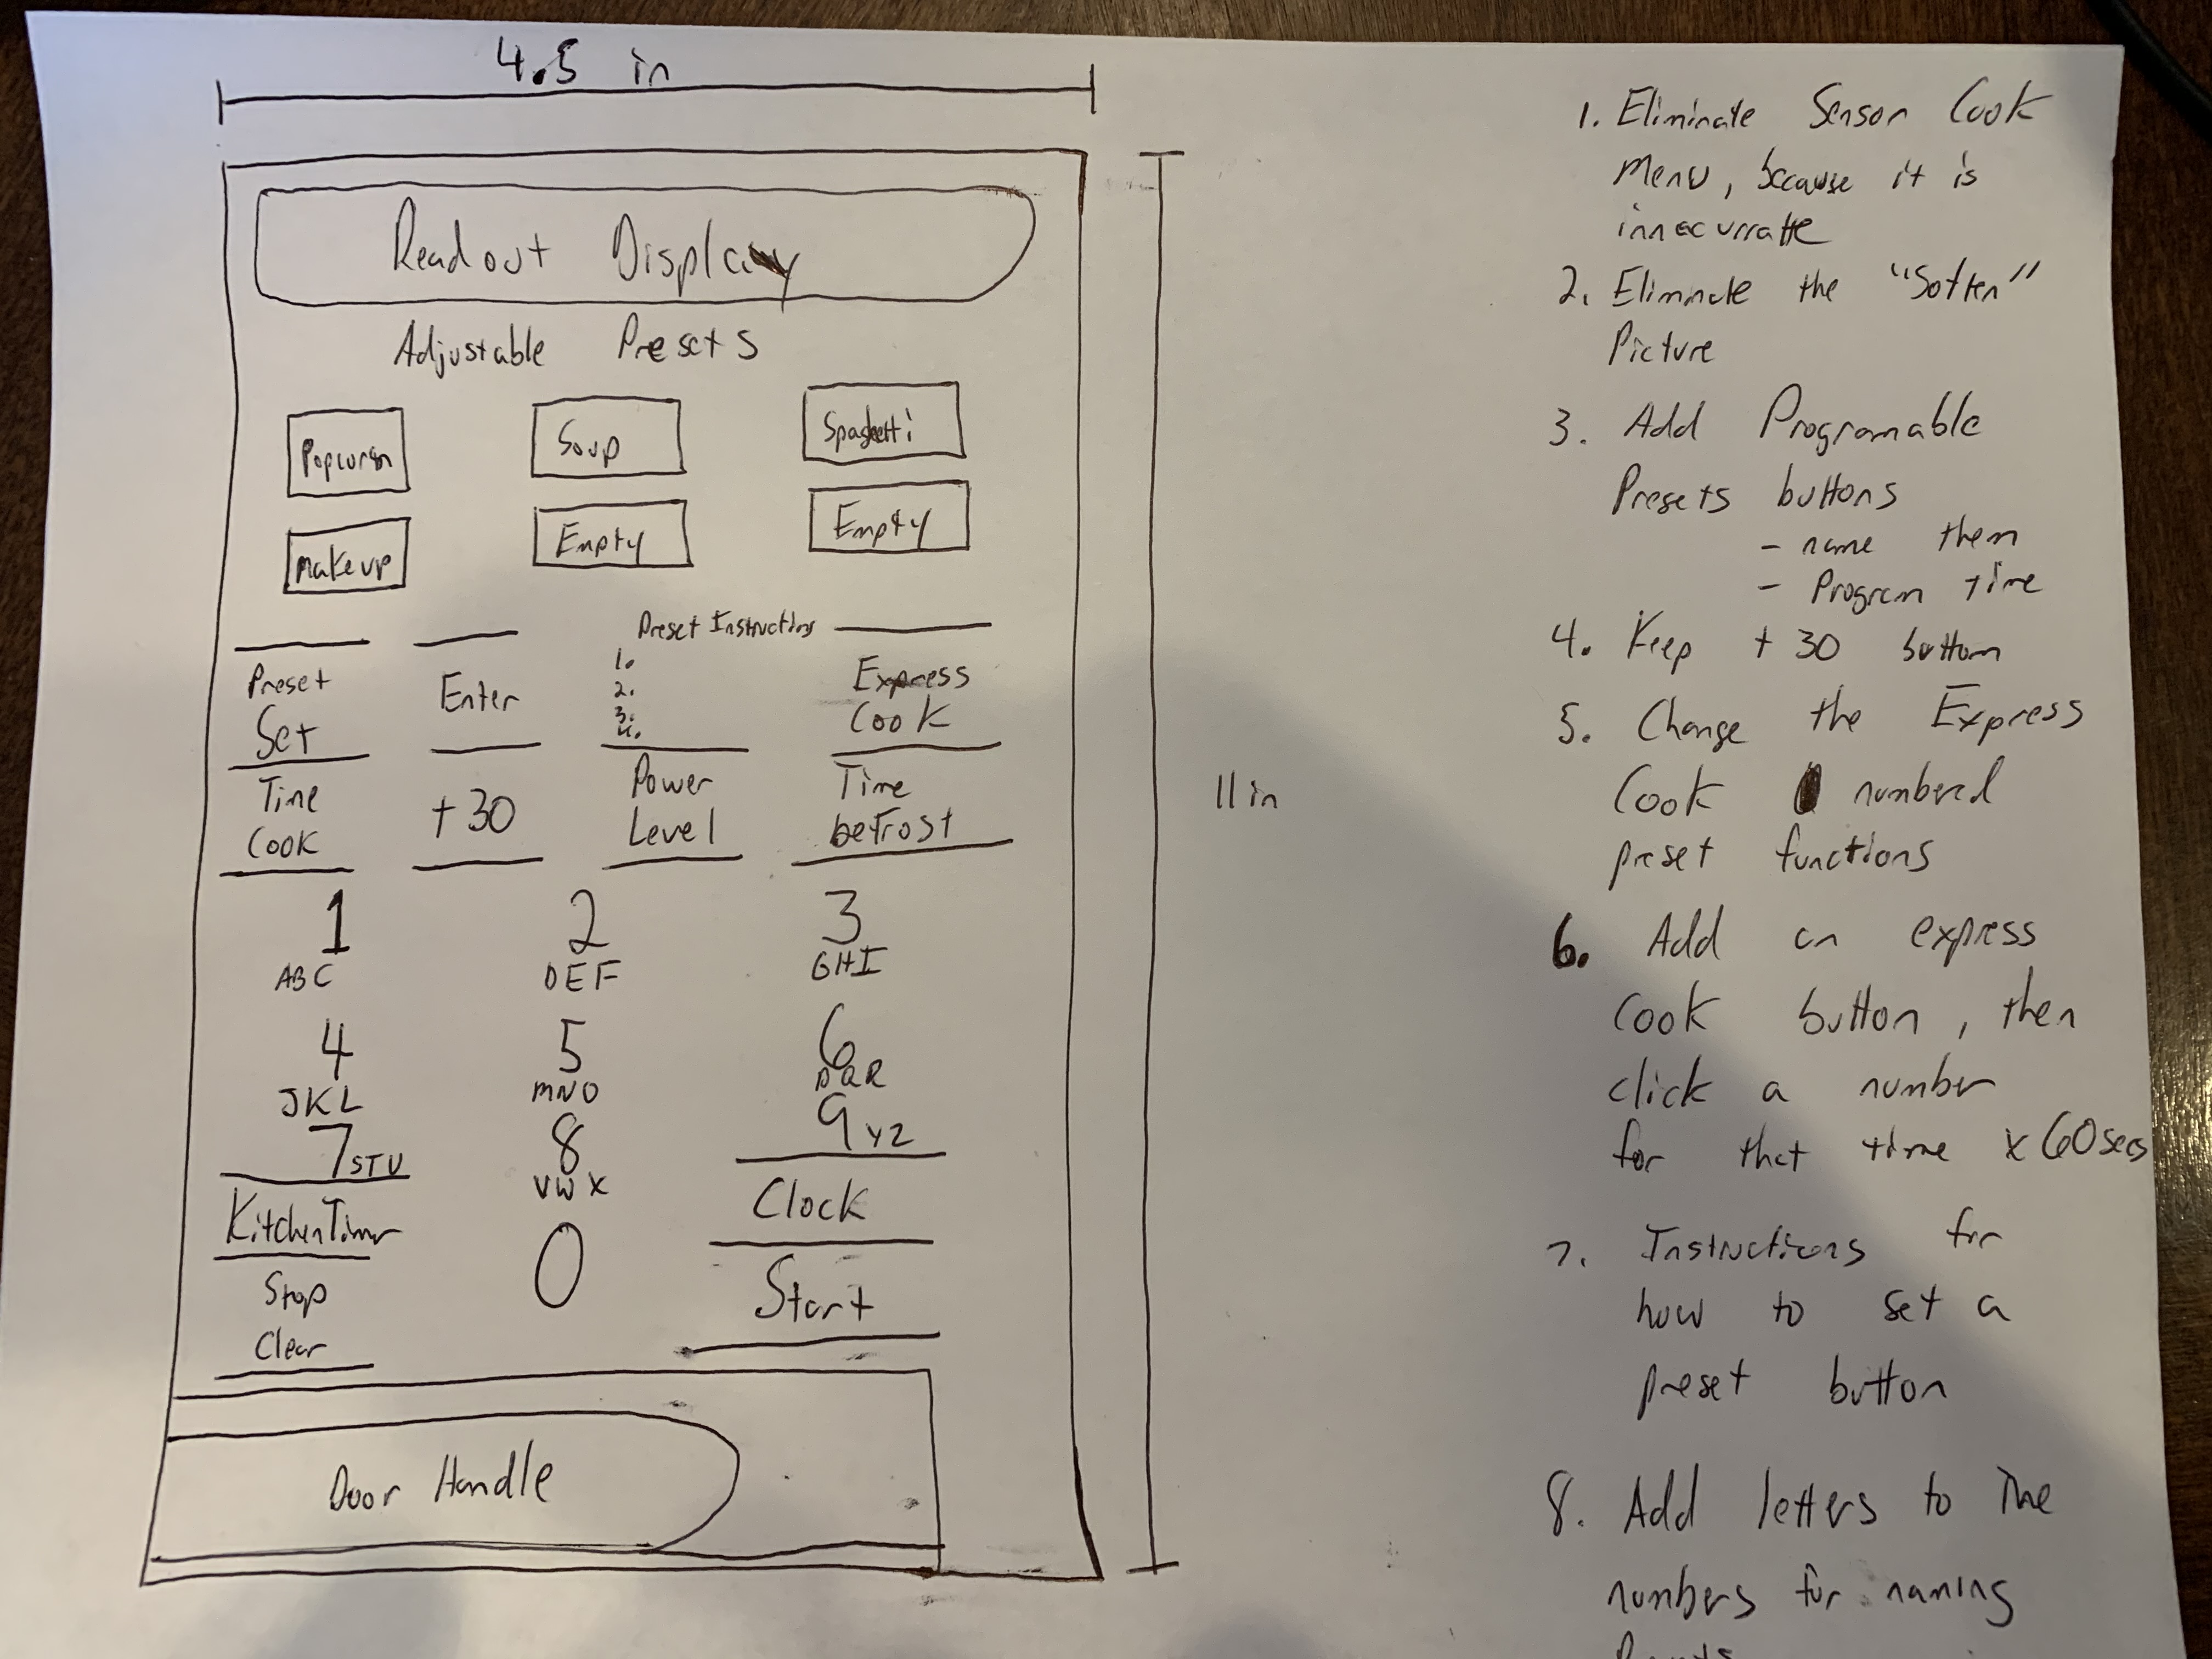 4.5 in
Readout Display
Adjustable Presets
Popcorn
Soup
Spaghetti
Makeup
Empty
Empty
Preset Instructions
Preset
Set
Enter
1.
2.
3.
4.
Express
Cook
Time
Cook
+30
Power
Level
Time
Defrost
1
ABC
2
DEF
3
GHI
4
JKL
5
MNO
6
PQR
7 STU
8
VWX
9 YZ
Kitchen Timer
0
Clock
Stop
Clear
Start
Door Handle
11 in
1. Eliminate Sensor Cook
Menu, because it is
innacurratte
2. Eliminate the "Soften"
Picture
3. Add Programable
Presets buttons
- name them
- Program time
4. Keep + 30 button
5. Change the Express
Cook numbered
preset functions
6. Add an express
cook button, then
click a number
for that time x 60 secs
7. Instructions for
how to set a
preset button
8. Add letters to the
numbers for naming